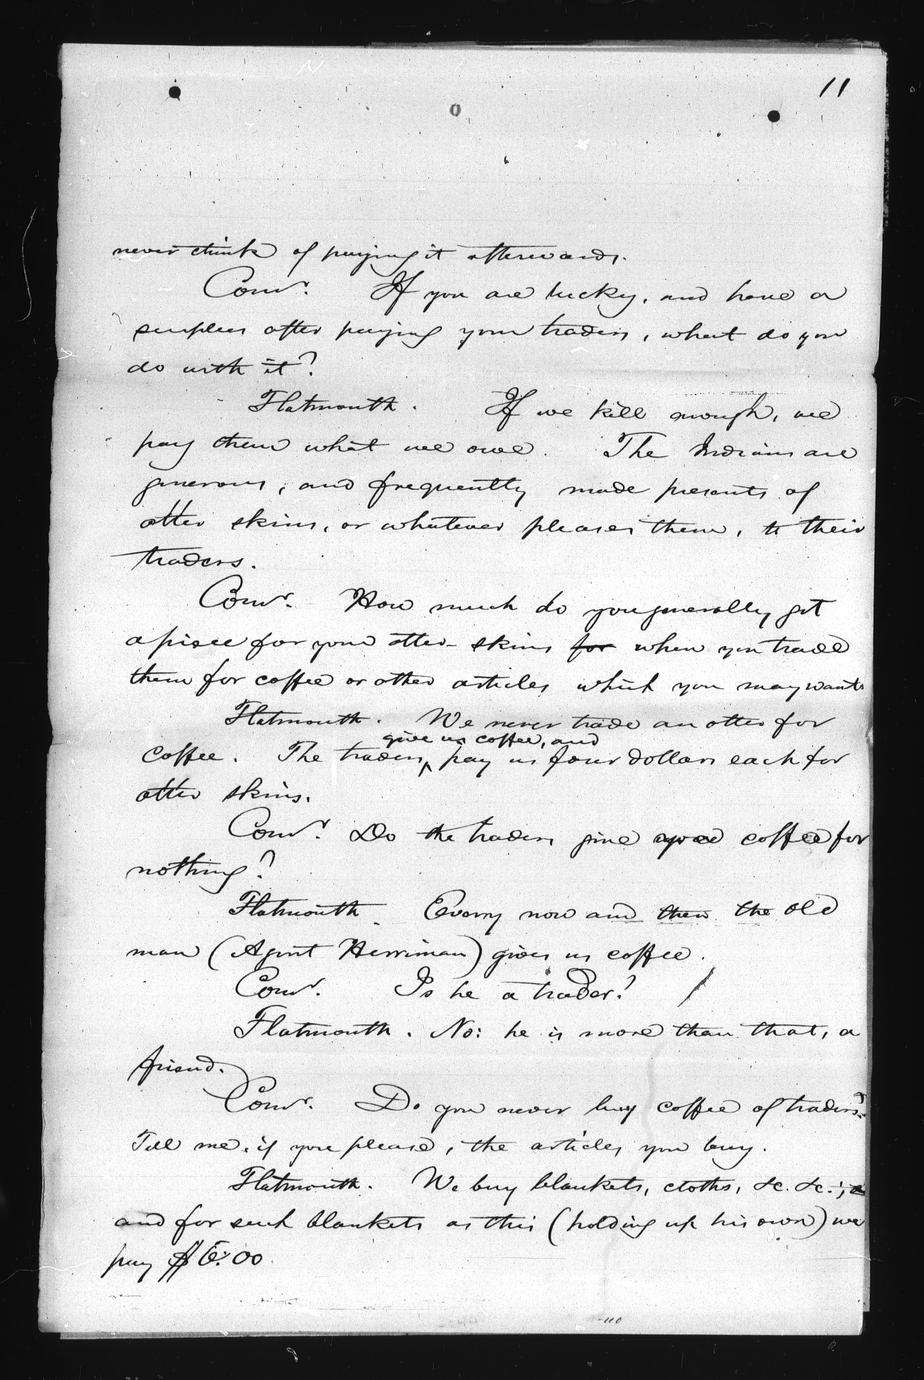 11
never think of paying it afterwards.
Comr. If you are lucky, and have a
surplus after paying your traders, what do you
do with it?
Flatmouth. If we kill enough, we
pay them what we owe. The Indians are
generous, and frequently made presents of
otter skins, or whatever pleases them, to their
traders.
Comr. How much do you generally get
apiece for your otter skins for when you trade
them for coffee or other articles which you may want
Flatmouth. We never trade an otter for
give us coffee, and
coffee. The traders, pay us four dollars each for
otter skins.
Comr. Do the traders give you coffee for
nothing?
Flatmouth. Every now and then the old
man (Agent Herriman) gives us coffee.
Comr. Is he a trader?
Flatmouth. No: he is more than that, a
friend.
Comr. Do you never buy coffee of traders?
Tell me, if you please, the articles you buy.
Flatmouth. We buy blankets, cloths, &c. &c.;
and for such blankets as this (holding up his own) we
pay $6.00